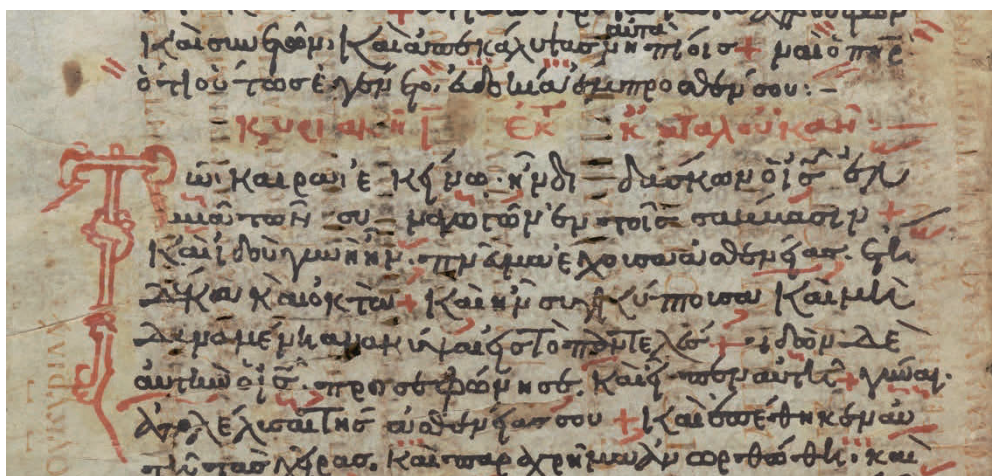 καὶ συνετῶν· καὶ ἀπεκάλυψας αὐτὰ νηπίοις + ναὶ ὁ πηρ
ὅτι οὕτως ἐγένετο εὐδοκία ἔμπροσθέν σου:–
κυριακῆ ι ἐκ τ κατὰ λουκᾶν
Τῶι καιρῶι ἐκείνω· ἦν διδάσκων ὁ ις ἐν
μιᾶ τῶν συναγωγῶν ἐν τοῖς σάββασιν +
καὶ ἰδοὺ γυνὴ ἦν· πνα ἔχουσα ἀσθενείας· ἔτη
δέκα καὶ ὀκτὼ + καὶ ἦν συγκύπτουσα καὶ μὴ
δυναμένη ἀνακύψαι εἰς τὸ παντελές + ἰδὼν δὲ
αὐτὴν ὁ ις· προσεφώνησε, καὶ εἶπεν αὐτῆ + γύναι·
ἀπολέλυσαι τῆς ἀσθενείας σου + καὶ ἐπέθηκεν αὐ
τῆ τὰς χεῖρας, καὶ παραχρῆμα ἀνωρθώθη· καὶ